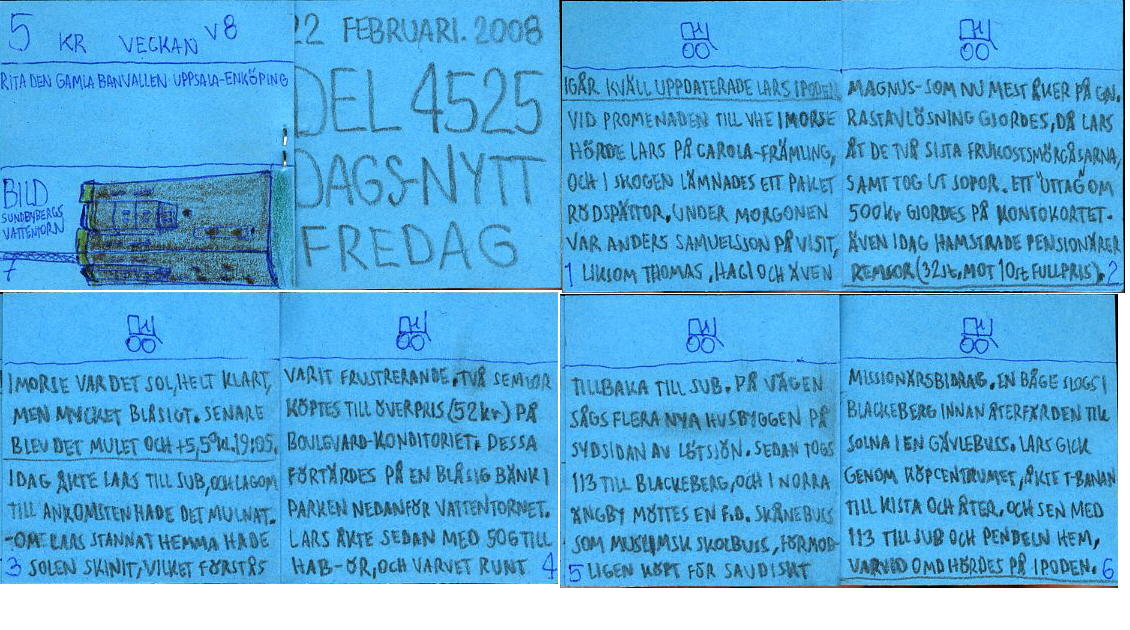 5 KR VECKAN V8
RITA DEN GAMLA BANVALLEN UPPSALA-ENKÖPING
BILD
SUNDBYBERGS
VATTENTORN
7
22 FEBRUARI. 2008
DEL 4525
DAGS-NYTT
FREDAG
IGÅR KVÄLL UPPDATERADE LARS IPODEN
VID PROMENADEN TILL VHE IMORSE
HÖRDE LARS PÅ CAROLA-FRÄMLING,
OCH I SKOGEN LÄMNADES ETT PAKET
RÖDSPÄTTOR, UNDER MORGONEN
VAR ANDERS SAMUELSSON PÅ VISIT,
1 LIKSOM THOMAS, HAGI OCH ÄVEN
MAGNUS-SOM NU MEST ÅKER PÅ
RASTAVLÖSNING GJORDES, DÅ LARS
ÅT DE TVÅ SISTA FRUKOSTSMÖRGÅSARNA,
SAMT TOG UT SOPOR. ETT "UTTAG OM
500kr GJORDES PÅ KONTOKORTET.
ÄVEN IDAG HAMSTRADE PENSIONÄRER
REMSOR (32st, MOT 10st FULLPRIS). 2
IMORSE VAR DET SOL, HELT KLART,
MEN MYCKET BLÅSIGT. SENARE
BLEV DET MULET OCH +5,5° kl. 19:05.
IDAG ÅKTE LARS TILL SUB, OCH LAGOM
TILL ANKOMSTEN HADE DET MULNAT.
-OM LARS STANNAT HEMMA HADE
3 SOLEN SKINIT, VILKET FÖRSTÅS
VARIT FRUSTRERANDE. TVÅ SEMLOR
KÖPTES TILL ÖVERPRIS (52kr) PÅ
BOULEVARD-KONDITORIET. DESSA
FÖRTÄRDES PÅ EN BLÅSIG BÄNK I
PARKEN NEDANFÖR VATTENTORNET.
LARS ÅKTE SEDAN MED 506 TILL
HAB-ÖR, OCH VARVET RUNT 4
TILLBAKA TILL SUB. PÅ VÄGEN
SÅGS FLERA NYA HUSBYGGEN PÅ
SYDSIDAN AV LÖTSJÖN. SEDAN TOGS
113 TILL BLACKEBERG, OCH I NORRA
ÄNGBY MÖTTES EN F.D. SKÅNEBUSS
SOM MUSLIMSK SKOLBUSS, FÖRMOD-
5 LIGEN KÖPT FÖR SAUDISKT
MISSIONÄRSBIDRAG. EN BÅGE SLOGS I
BLACKEBERG INNAN ÅTERFÄRDEN TILL
SOLNA I EN GÄVLEBUSS. LARS GICK
GENOM KÖPCENTRUMET, ÅKTE T-BANAN
TILL KISTA OCH ÅTER, OCH SEN MED
113 TILL SUB OCH PENDELN HEM,
VARVID OMD HÖRDES PÅ IPODEN. 6